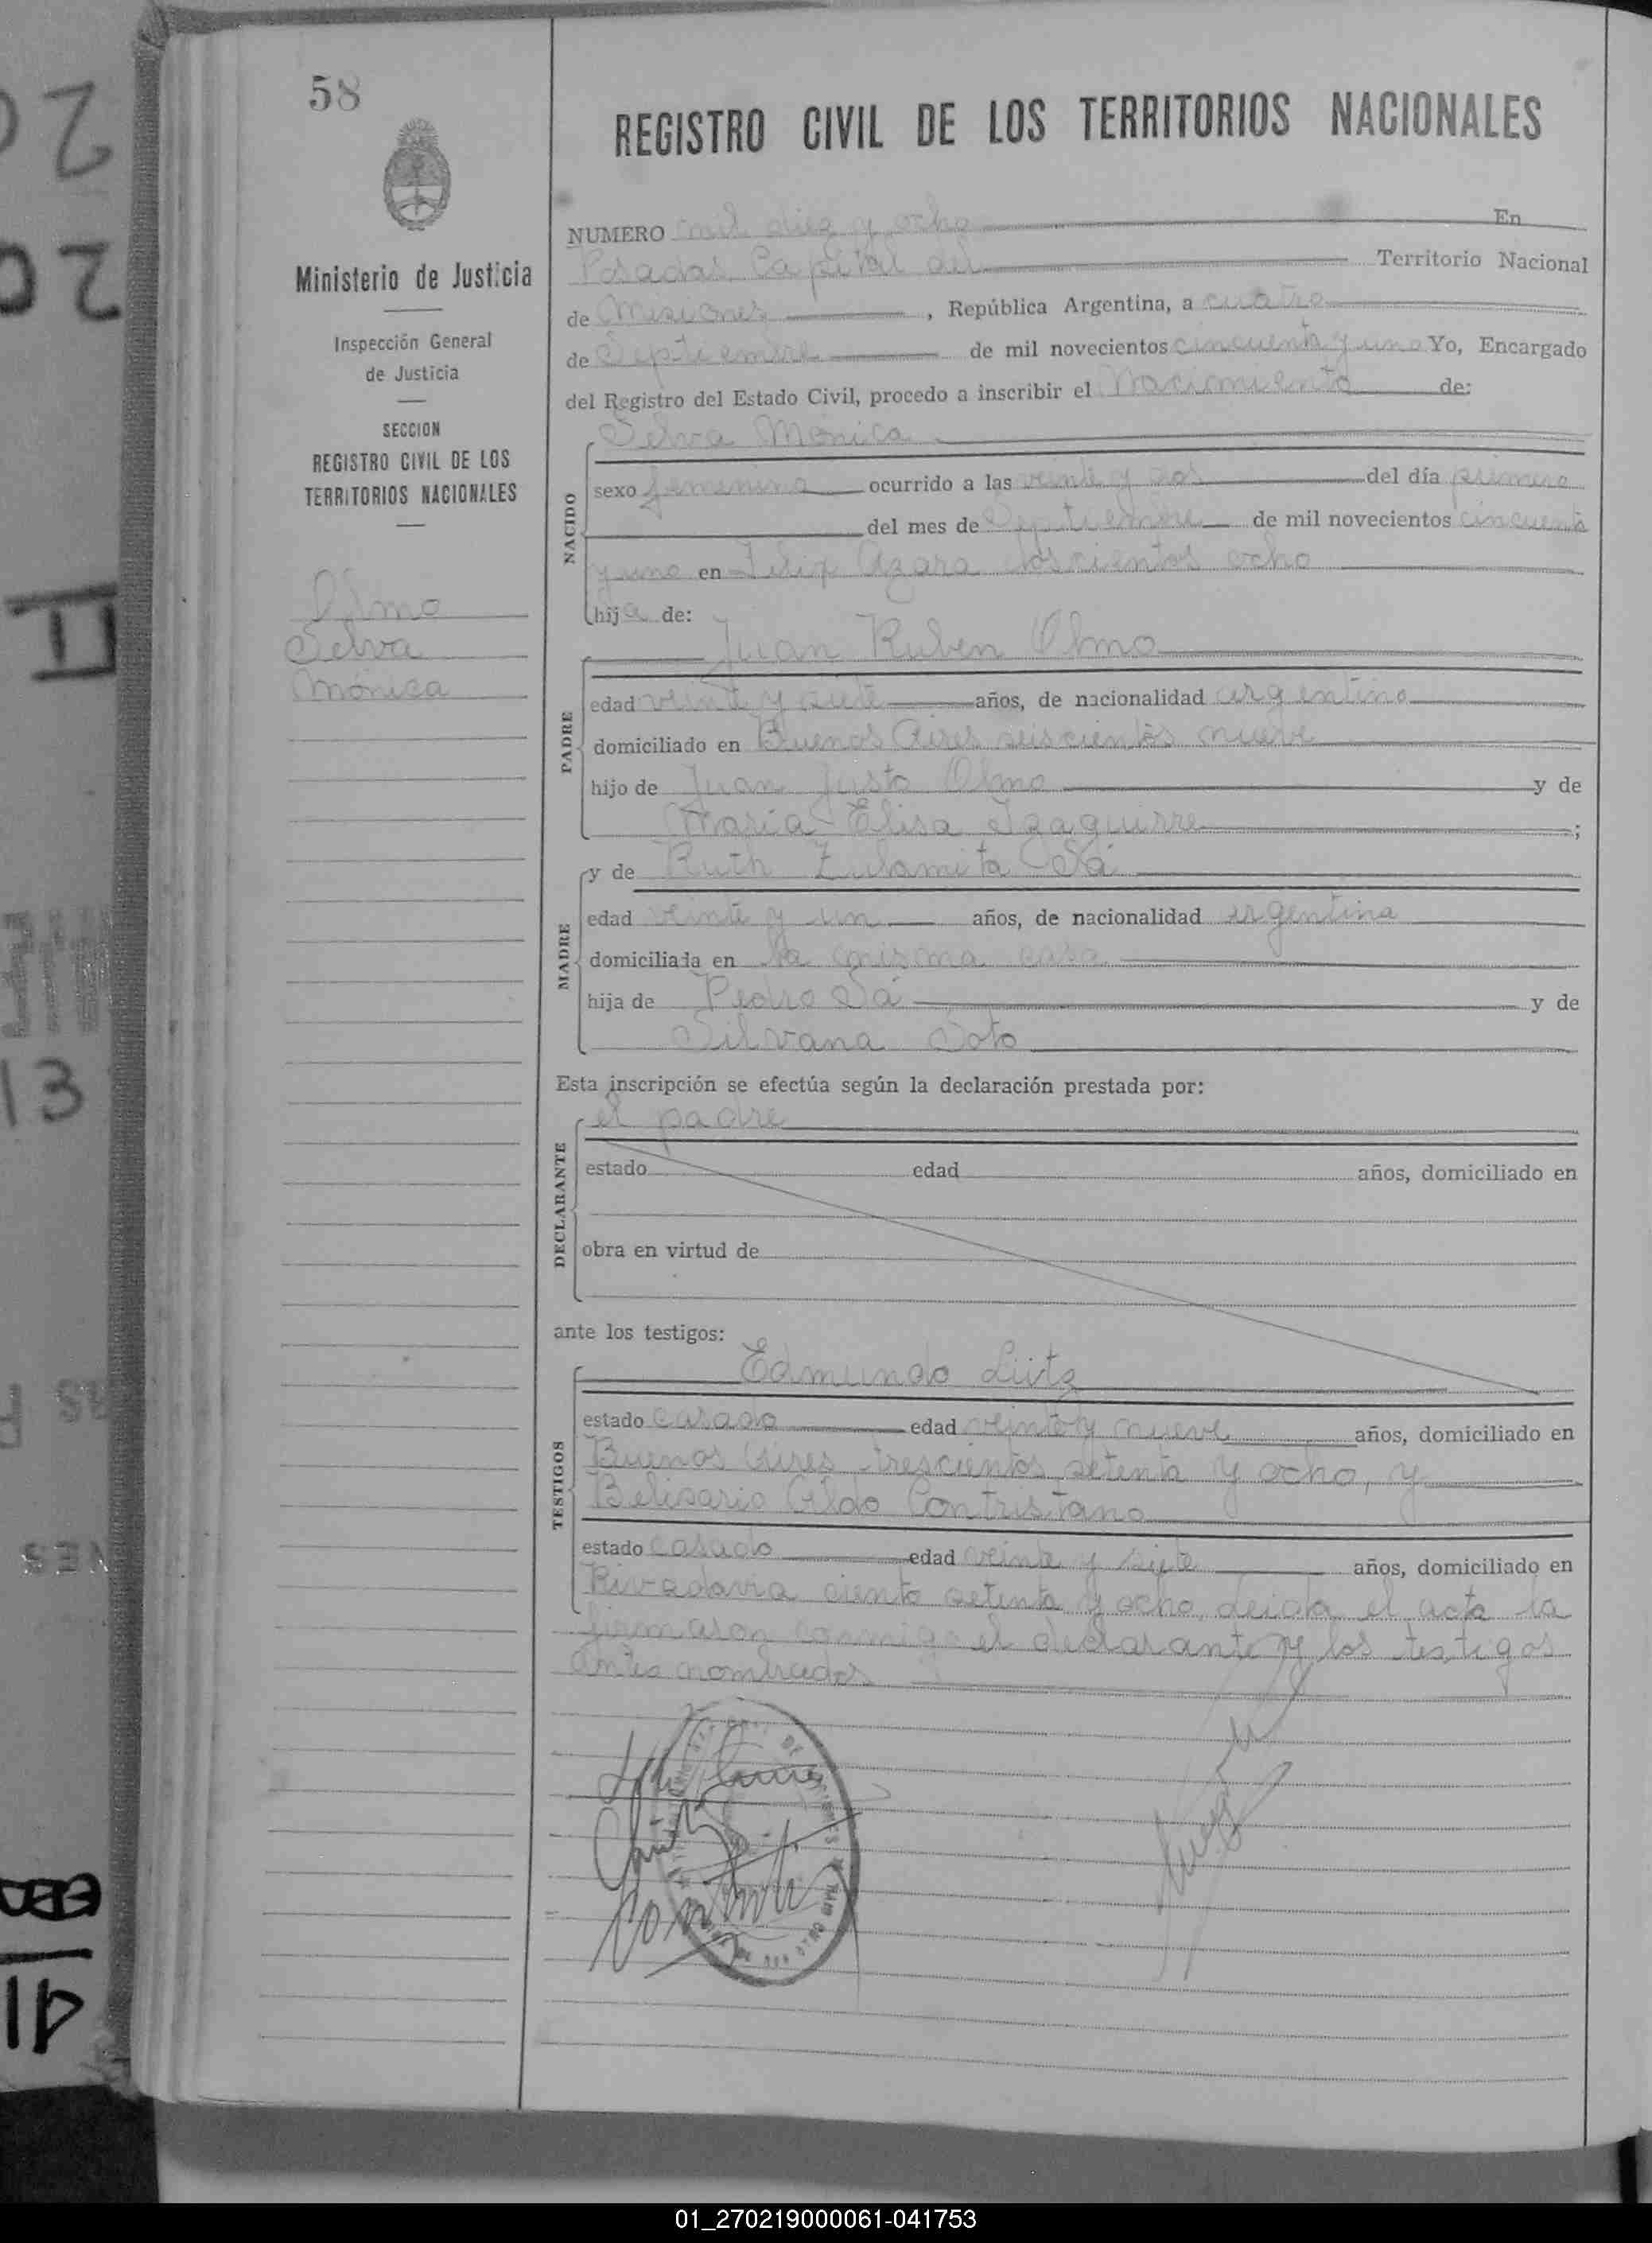 58
REGISTRO CIVIL DE LOS TERRITORIOS NACIONALES
Ministerio de Justicia
Inspección General
de Justicia
SECCION
REGISTRO CIVIL DE LOS
TERRITORIOS NACIONALES
Olmo
Selva
Mónica
NUMERO mil diez y ocho En
Posadas, Capital del Territorio Nacional
de Misiones, República Argentina, a cuatro
de Septiembre de mil novecientos cincuenta y uno Yo, Encargado
del Registro del Estado Civil, procedo a inscribir el Nacimiento de:
Selva Mónica
NACIDO
sexo femenino ocurrido a las veinte y dos del día primero
del mes de Septiembre de mil novecientos cincuenta
y uno en Félix Azara doscientos ocho
hija de:
Juan Ruben Olmo
PADRE
edad veinte y siete años, de nacionalidad argentino
domiciliado en Buenos Aires seiscientos nueve
hijo de Juan Justo Olmo y de
María Elisa Izaguirre;
y de Ruth Zulamita Sá
MADRE
edad veinte y un años, de nacionalidad argentina
domiciliada en la misma casa
hija de Pedro Sá y de
Silvana Soto
Esta inscripción se efectúa según la declaración prestada por:
el padre
DECLARANTE
estado edad años, domiciliado en
obra en virtud de
ante los testigos:
Edmundo
TESTIGOS
estado casado edad veinte y nueve años, domiciliado en
Buenos Aires trescientos setenta y ocho, y
Belisario Aldo Contristano
estado casado edad veinte y siete años, domiciliado en
Rivadavia ciento setenta y ocho, leida el acta la
firmaron conmigo el declarante y los testigos
antes nombrados
01_270219000061-041753